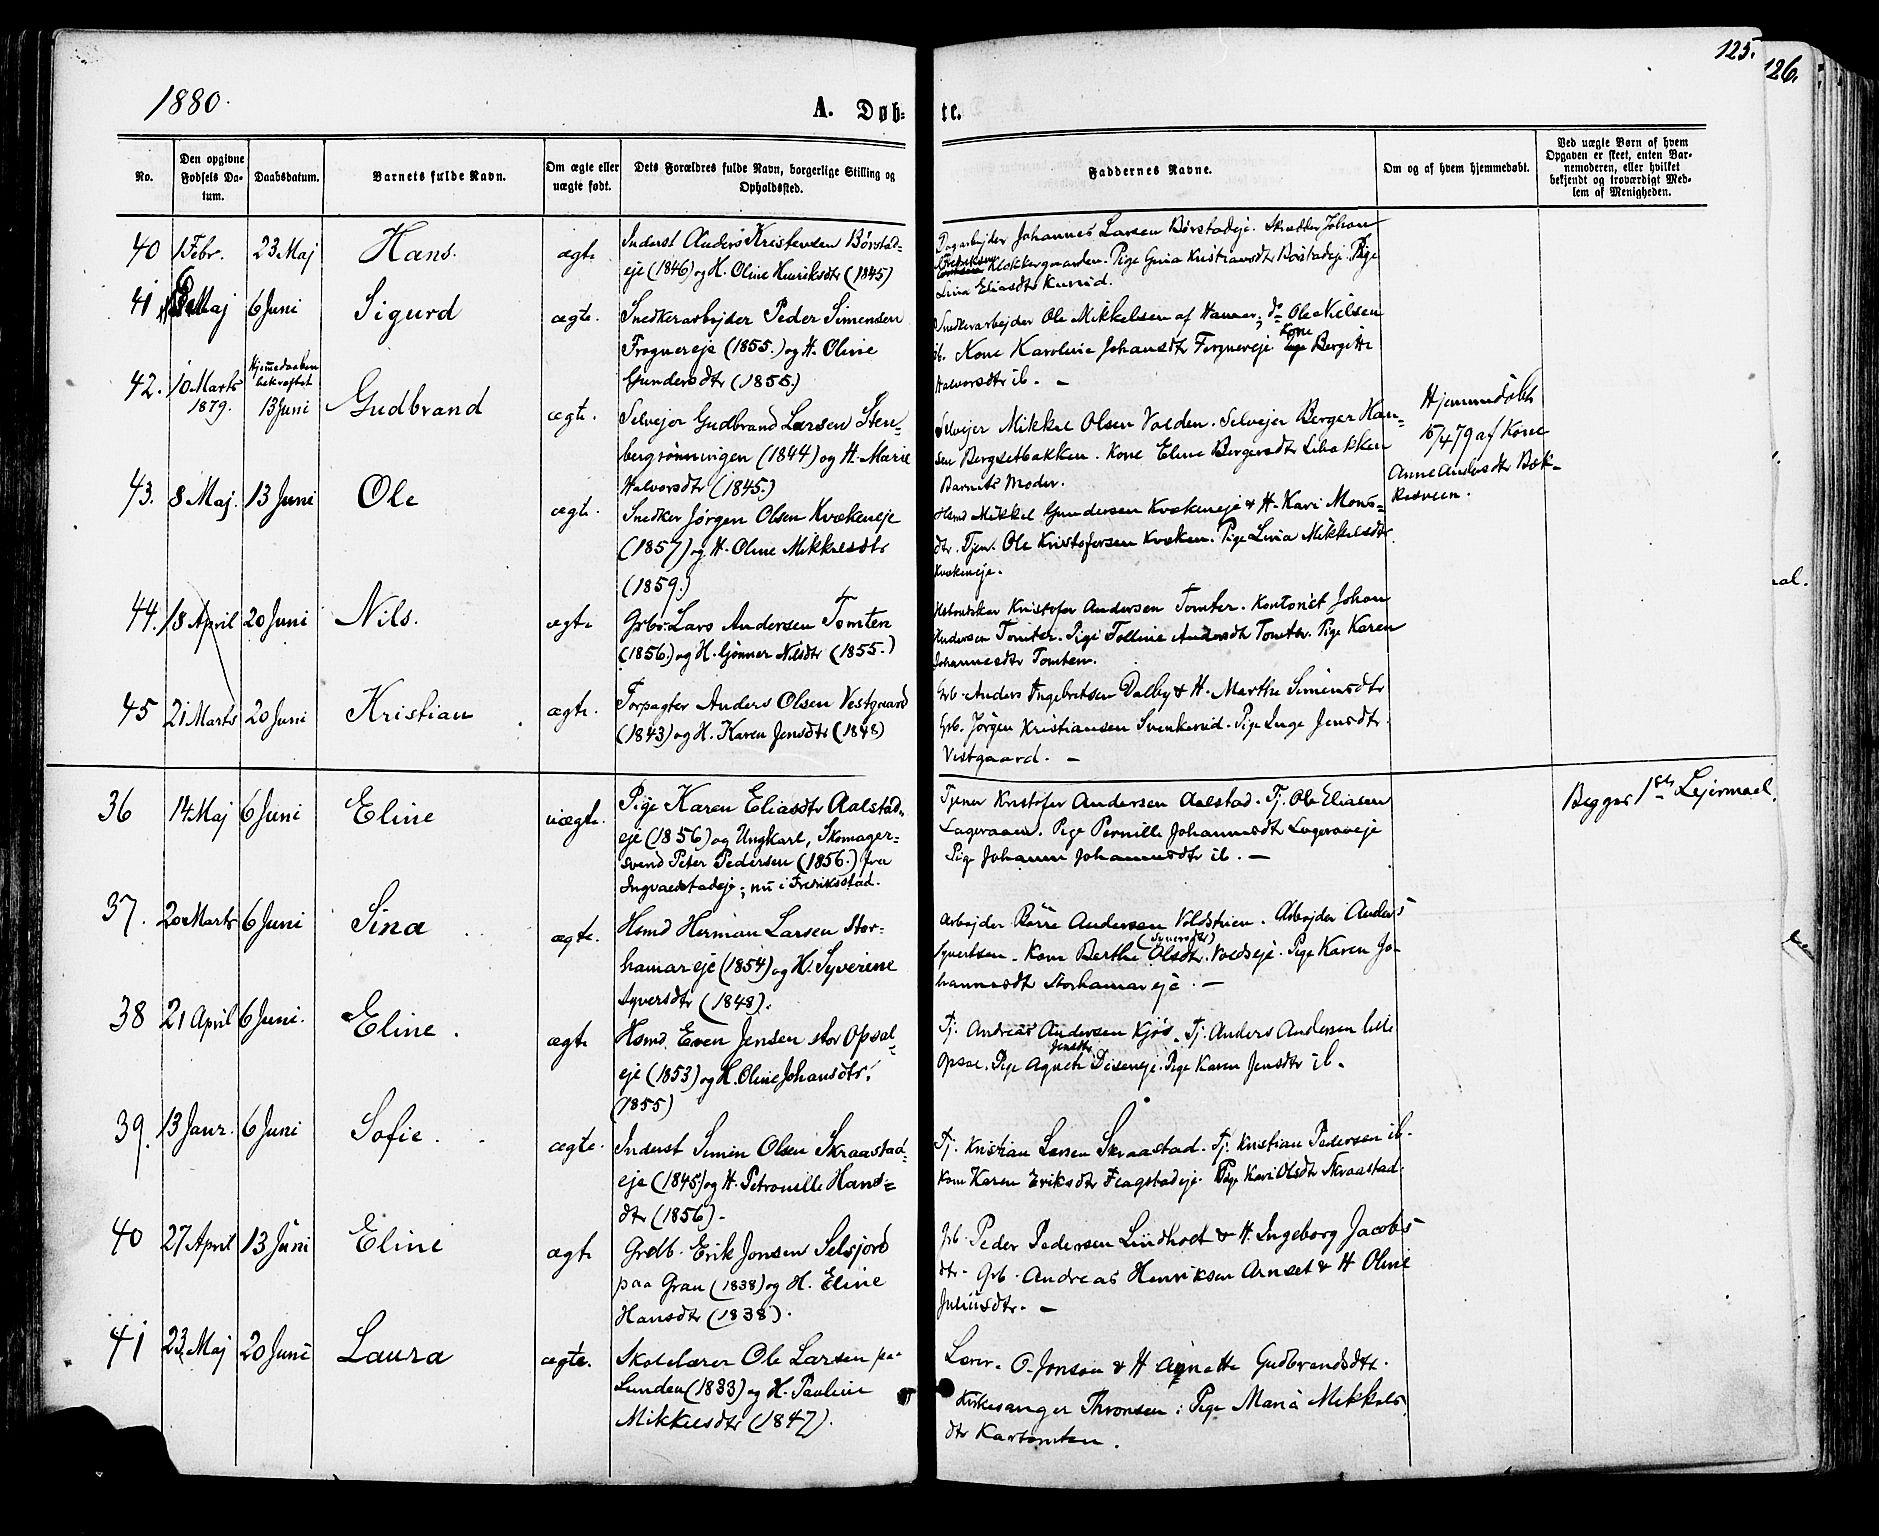 125.
126.
1880.
A. Døb-
te.
No.
Den opgivne Fødsels Datum.
Daabsdatum.
Barnets fulde Navn.
Om ægte eller uægte født.
Dets Forældres fulde Navn, borgerlige Stilling og Opholdssted.
Faddernes Navne.
Om og af hvem hjemmedøbt.
Ved uægte Børn af hvem Opgaven er skeet, enten Barnemoderen, eller hvilket bekjendt og troværdigt Medlem af Menigheden.
40 1 Febr. 23 Maj Hans. ægte
Inderst Anders Kristensen Børstad-
eje (1846) og H. Oline Henriksdtr (1845)
Dagarbejder Johannes Larsen Børstadeje. Skrædder Johan
Fredriksen Klokkergaarden. Pige Gina Kristiansdtr Børstadeje. Pige
Lina Eliasdtr
41 Maj 6 Juni Sigurd ægte.
Snedkerarbejder Peder Simensen
Frognereje (1855.) og H. Oline
Gundersdtr (1855.)
Snedkerarbejder Ole Mikkelsen af Hamar; do Ole Nielsen
ib. Kone Karoline Johansdtr Kone Bergitte
Halvorsdtr ib. —
42. 10 Marts 1879. Hjemmedaaben bekræftet 13 Juni Gudbrand ægte.
Selvejer Gudbrand Larsen Sten-
bergrønningen (1844) og H. Marie
Halvorsdtr (1845.)
Selvejer Mikkel Olsen Volden. Selvejer Berger Han-
sen Bergsetbakken. Kone Eline Bergersdtr Libakken
Barnets Moder.
Hjemmedøbt
15/4 79 af Kone
Anne Andersdtr Bæk-
43. 8 Maj. 13 Juni Ole ægte.
Snedker Jørgen Olsen Kvækeneje
(1857) og H. Oline Mikkelsdtr
(1859.)
Hsmd Mikkel Gundersen Kvækeneje & H. Kari Mons-
dtr. Tjen. Ole Kristofersen Kvæken. Pige Lina Mikkelsdtr
Kvækeneje.
44. 18 April 20 Juni Nils. ægte
Grbr. Lars Andersen Tomten
(1856.) og H. Gjønner Nilsdtr (1855.)
Kristofer Andersen Tomter. Kontorist Johan
Andersen Tomter. Pige Tolline Andersdtr Tomter. Pige Karen
Johannesdtr Tomten.
45 21 Marts 20 Juni Kristian ægte.
Forpagter Anders Olsen Vestgaard
(1843) og H. Karen Jensdtr (1848)
Grb. Anders Engebretsen Dalby & H. Marthe Simensdtr
Grb. Jörgen Kristiansen Svenkerud. Pige Inge Jensdtr.
Vestgaard. —
36 14 Maj 6 Juni Eline uægte.
Pige Karen Eliasdtr Aalstad-
eje (1856) og Ungkarl, Skomager-
svend Peter Pedersen (1856.) fra
Ingvaldstadeje; nu i Fredriksstad.
Tjener Kristofer Andersen Aalstad. Tj. Ole Eliasen
Lageraaen. Pige Pernille Johannesdtr Lageraaeje
Pige Johanne Johannesdtr ib. —
Begges 1ste Lejermaal.
37. 20 Marts 6 Juni Sina ægte.
Hsmd Herman Larsen Stor-
hamareje (1854) og H. Syverine
Syversdtr (1848).
Arbejder Børre Andersen Voldstuen. Arbejder Anders
Syvertsen. Kone Berthe (Syversdtr) Olsdtr. Voldseje. Pige Karen Jo-
hannesdtr Storhamareje. —
38 21 April 6 Juni. Eline. ægte
Hsmd. Even Jensen stor Opsal-
eje (1853) og H. Oline Johansdtr.
(1855)
Tj. Andreas Andersen Kjøs. Tj. Anders Andersen lille
Opsal. Pige Agnethe Jensdtr Diseneje. Pige Karen Jensdtr ib.
39. 13 Janr. 6 Juni Sofie. ægte.
Inderst Simen Olsen Skraastad-
eje (1845) og H. Petronille Hans-
dtr (1856).
Tj. Kristian Larsen Skraastad. Tj. Kristian Pedersen ib.
Kone Karen Eriksdtr Flagstadeje. Pige Kari Olsdtr Skraastad.
40 27 April 13 Juni Eline ægte
Grdb. Erik Jonsen Selsjord
paa Gran (1838) og H. Eline
Hansdtr (1838).
Grb. Peder Pedersen Lindholt & H. Ingeborg Jacobs-
dtr. Grb. Andreas Henriksen Arnset & H Oline
Juliusdtr. —
41 23. Maj 20 Juni Laura ægte.
Skolelærer Ole Larsen paa
Lunden (1833) og H. Pauline
Mikkelsdtr (1847).
Lærer. O. Jonsen & H Agnethe Gudbrandsdtr.
Kirkesanger Thronsen; Pige Maria Mikkels
dtr Kartomten.